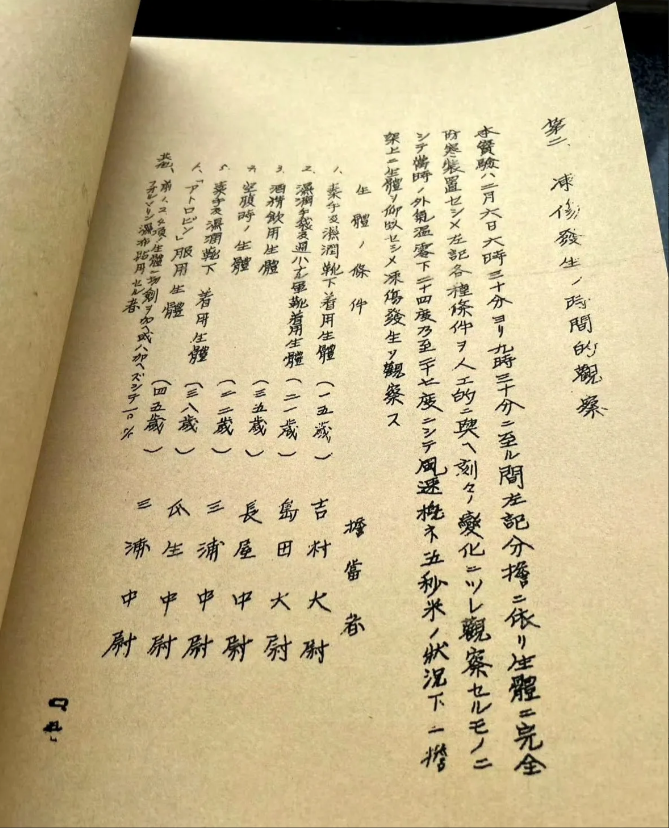 第二、凍傷發生ノ時間的觀察
本實驗ハ二月六日六時三十分ヨリ九時三十分ニ至ル間左記分擔ニ依リ生體ニ完全
防寒裝置セシメ左記各種條件ヲ人工的ニ與ヘ刻々ノ變化ニツレ觀察セルモノニ
シテ當時ノ外氣溫零下二十四度乃至二十七度ニシテ風速概ネ五秒米ノ狀況下ニ擔
架上ニ生體ヲ仰臥セシメ凍傷發生ヲ觀察ス
生體ノ條件 擔當者
1、素手及濕潤靴下着用生體 (一五歲) 吉村大尉
2、濕潤手袋及過小ナル軍靴着用生體 (二一歲) 島田大尉
3、酒精飲用生體 (三五歲) 長屋中尉
4、空腹時ノ生體 (二二歲) 三浦中尉
5、素手及濕潤靴下着用生體 (三八歲) 瓜生中尉
6、「アトロピン」服用生體 (四五歲) 三浦中尉
其他、前ノ生體ニ切創ヲ加ヘ或ハ加ヘズシテ一〇%
フオルマリン濕布貼用セル者